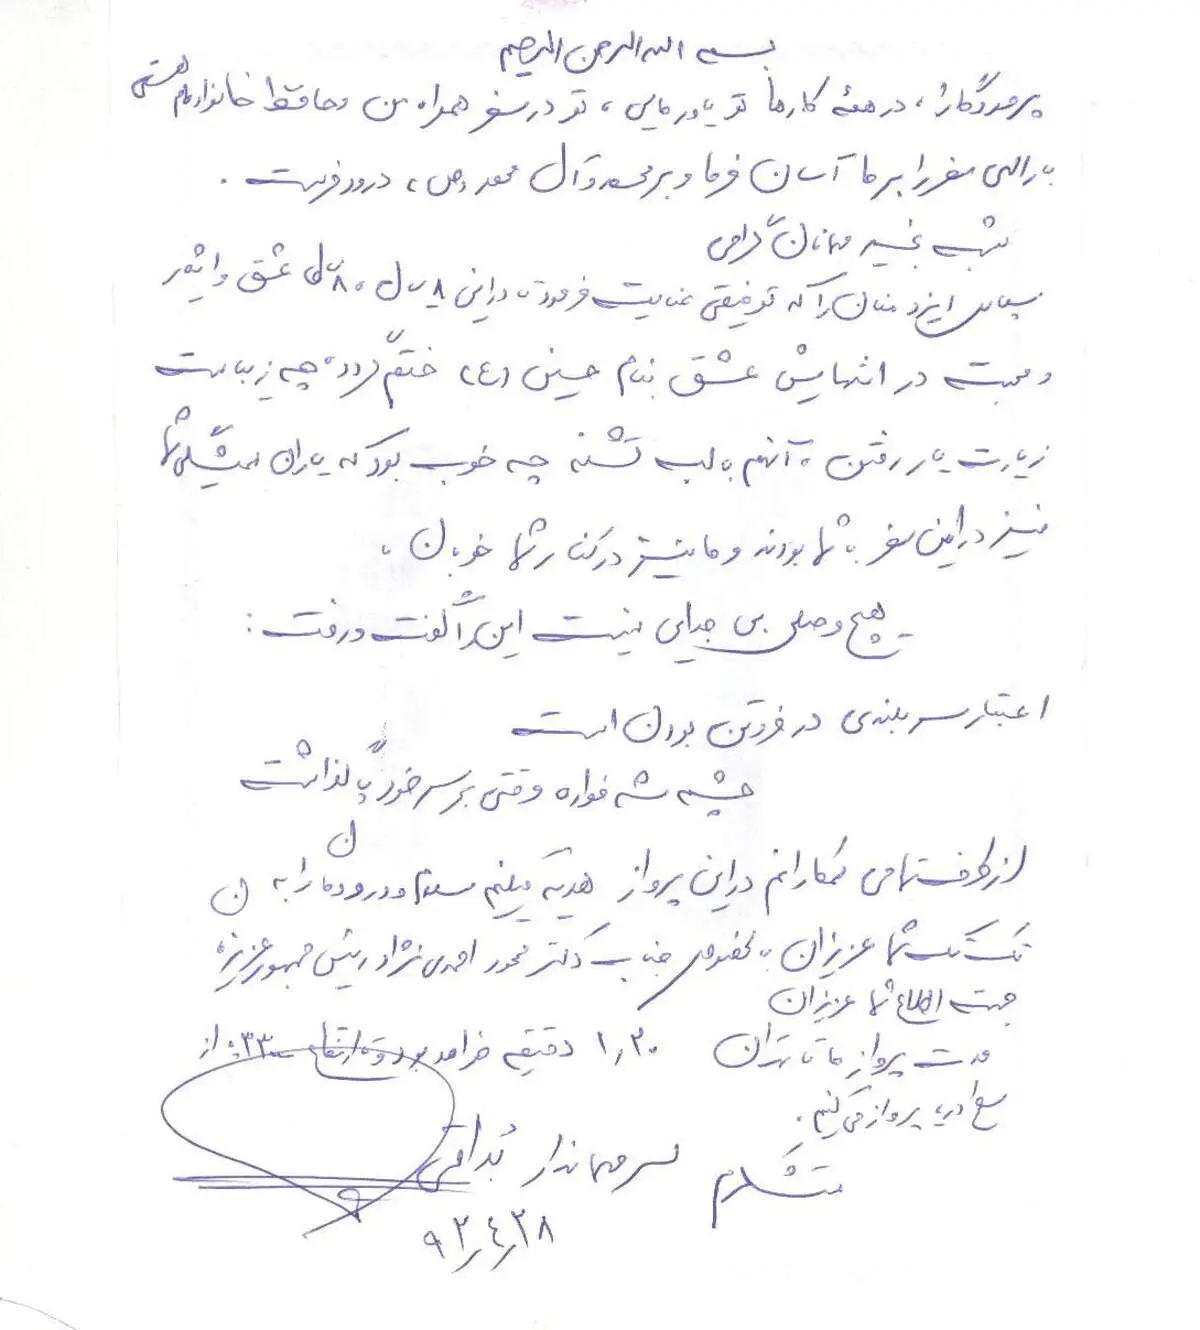 بسم الله الرحمن الرحیم
پروردگارا، در همهٔ کارها تو یاور مایی، تو در سفر همراه من و حافظ خانواده‌ام هستی
بارالهی سفر را بر ما آسان فرما و بر محمد و آل محمد (ص) درود فرست.
شب بخیر مهمانان گرامی
سپاس ایزد منان را که توفیقی عنایت فرمود تا در این ۸ سال ۸ سال عشق و ایثار
و محبت در انتهایش عشق بنام حسین (ع) ختم گردد، چه زیباست
زیارت یار رفتن، آنهم با لب تشنه چه خوب بود که یاران همیشگی شما
نیز در این سفر با شما بودند و ما نیز در کنار شما خوبان،
هیچ وصلی بی جدایی نیست این را گفت و رفت:
اعتبار سربلندی در فروتن بودن است
چشمه شد فواره وقتی بر سر خود پا گذاشت
از طرف همکارانم در این پرواز هدیه میکنم سلام و درود ما را به
تک تک شما عزیزان بالخصوص جناب دکتر محمود احمدی نژاد رئیس جمهور عزیز،
جهت اطلاع شما عزیزان
مدت پرواز ما تا تهران ۱٫۲۰ دقیقه خواهد بود و ارتفاع ۳۳۰۰۰ از
سطح دریا پرواز می کنیم.
متشکرم سرمهماندار بُداقی
۹۲٫۴٫۲۸